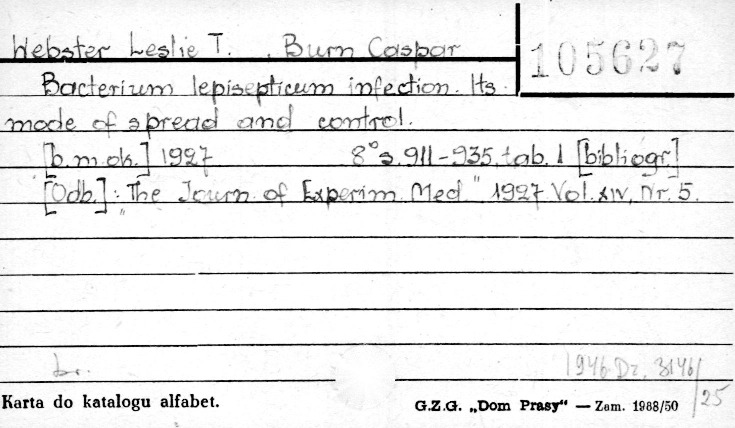 Webster Leslie T. , Burn Caspar
105627
Bacterium lepisepticum infection. Its
mode of spread and control.
[b.m.ok.] 1927 8° s. 911-935, tab. 1 [bibliogr.]
[Odb.]: "The Journ. of Experim. Med." 1927 Vol. XLV, Nr. 5.
br.
1946 Dz. 3146/25
Karta do katalogu alfabet.
G.Z.G. „Dom Prasy" — Zam. 1988/50